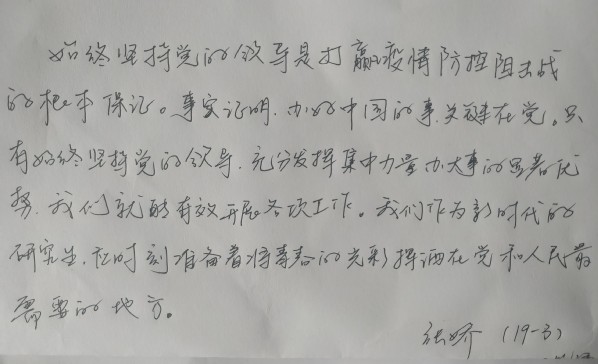 始终坚持党的领导是打赢疫情防控阻击战
的根本保证。事实证明，办好中国的事，关键在党。只
有始终坚持党的领导，充分发挥集中力量办大事的显著优
势，我们就能有效开展各项工作。我们作为新时代的
研究生，应时刻准备着将青春的光彩挥洒在党和人民最
需要的地方。
张娇（19-3）